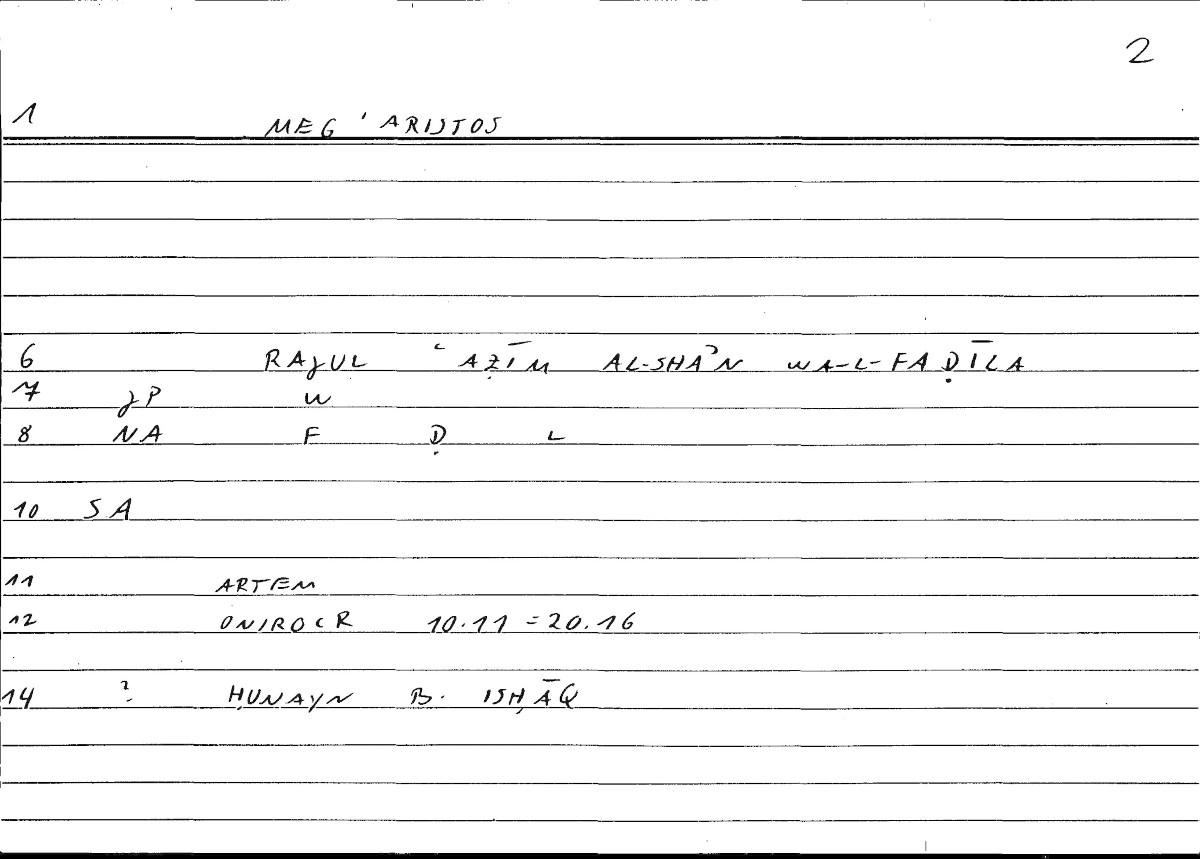 2
1 MEG 'ARISTOS
6 RAJUL ʿAẒĪM AL-SHAʾN WA-L-FAḌĪLA
7 JP W
8 NA F Ḍ L
10 SA
11 ARTEM
12 ONIROCR 10.11 = 20.16
14 ? ḤUNAYN B. ISḤĀQ